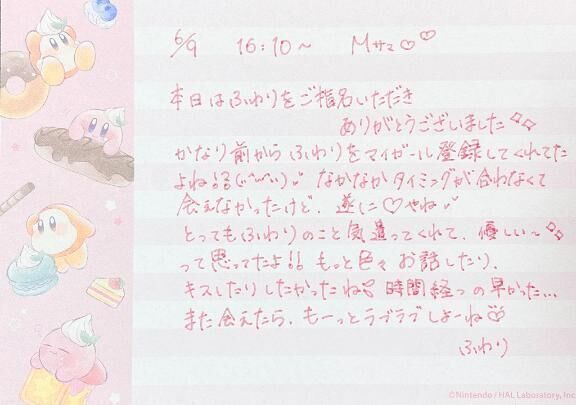 6/9 16:10〜 Mサマ♡♡
本日はふわりをご指名いただき
ありがとうございました✧✧
かなり前からふわりをマイガール登録してくれてた
よね!? なかなかタイミングが合わなくて
会えなかったけど、遂に♡やね
とってもふわりのこと気遣ってくれて、優しい〜✧✧
って思ってたよ!! もっと色々お話したり、
キスしたりしたかったね 時間経つの早かった…
また会えたら、もーっとラブラブしよーね♡
ふわり
©Nintendo / HAL Laboratory, Inc